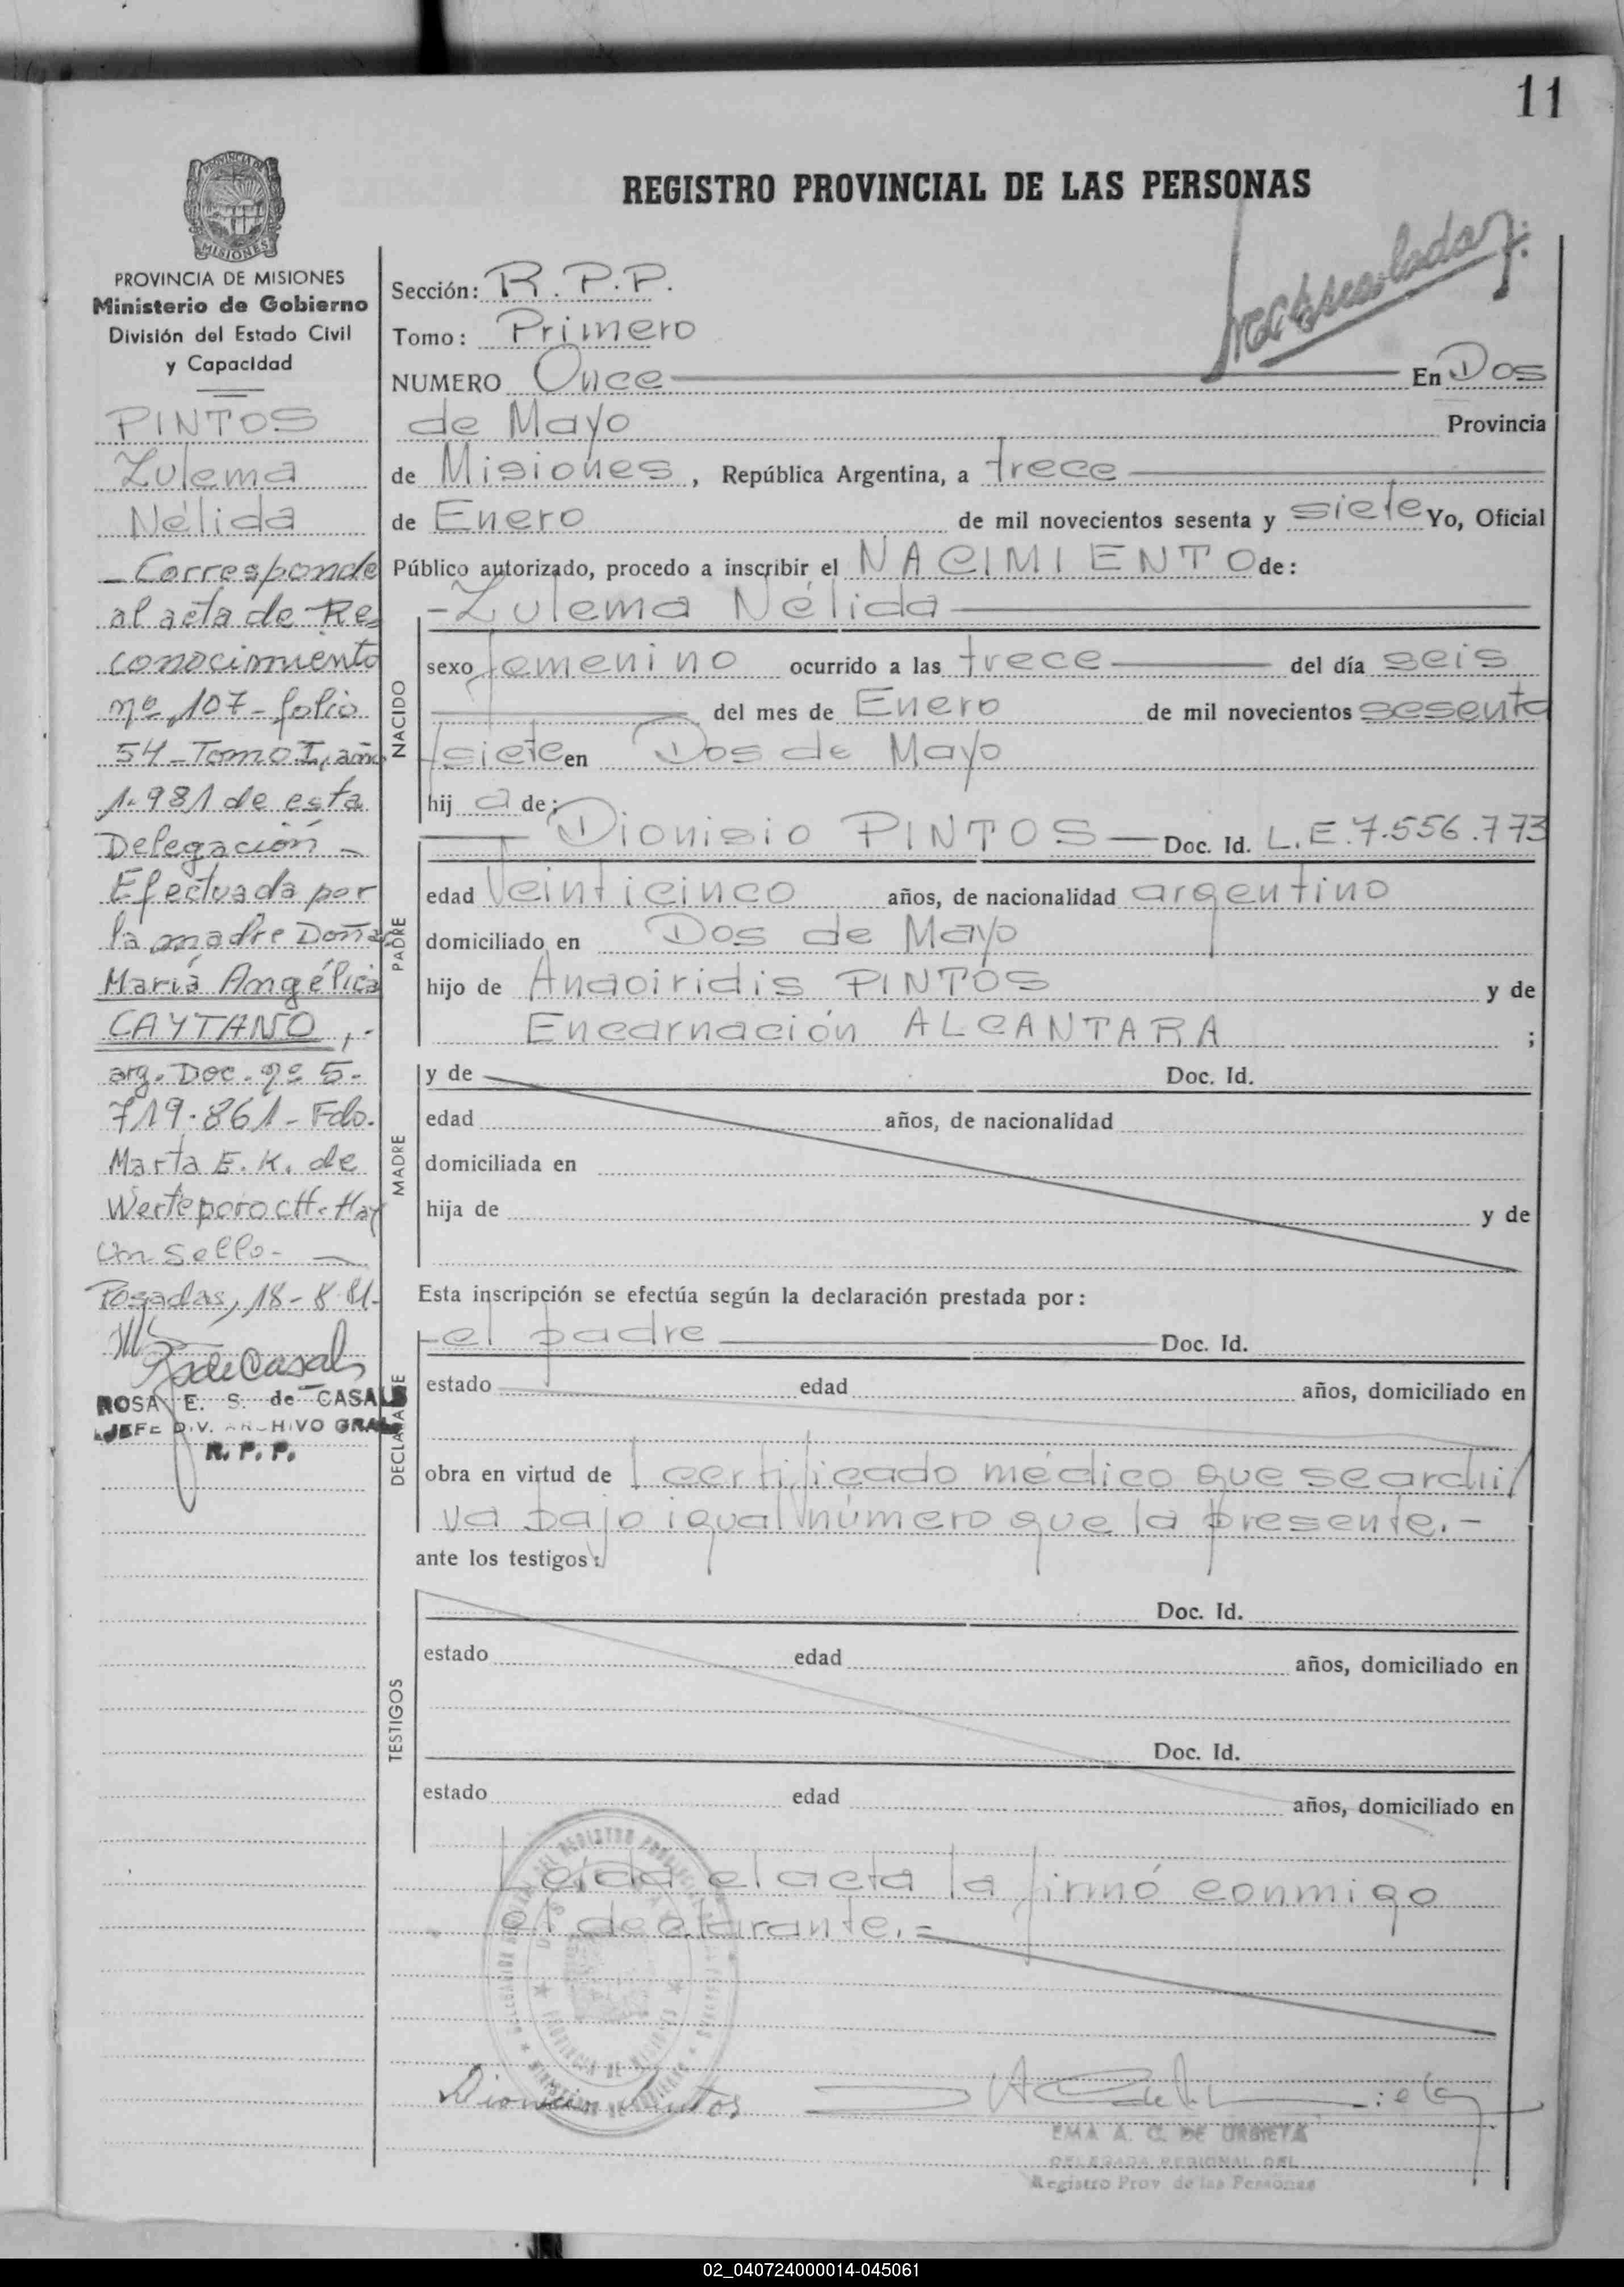 11
REGISTRO PROVINCIAL DE LAS PERSONAS
MISIONES
PROVINCIA DE MISIONES
Ministerio de Gobierno
División del Estado Civil
y Capacidad
PINTOS
Zulema
Nélida
- Corresponde
al acta de Re=
conocimiento
nº 107 - folio
54 - Tomo I, año
1.981 de esta
Delegación -
Efectuada por
la madre Doña
María Angélica
CAYTANO,.-
arg. Doc. nº 5-
719.861 - Fdo.
Marta E. K. de
Werteporoctt - Hay
un sello. -
Posadas, 18-8-81-
ROSA E. S. de CASALS
JEFE DIV. ARCHIVO GRAL
R. P. P.
Sección: R. P. P.
Tomo: Primero
NUMERO Once En Dos
de Mayo Provincia
de Misiones, República Argentina, a trece
de Enero de mil novecientos sesenta y siete Yo, Oficial
Público autorizado, procedo a inscribir el NACIMIENTO de:
- Zulema Nélida
NACIDO
sexo femenino ocurrido a las trece del día seis
del mes de Enero de mil novecientos sesenta
siete en Dos de Mayo
hij a de:
Dionisio PINTOS Doc. Id. L.E. 7.556.773
PADRE
edad Veinticinco años, de nacionalidad argentino
domiciliado en Dos de Mayo
hijo de PINTOS y de
Encarnación ALCANTARA ;
MADRE
y de Doc. Id.
edad años, de nacionalidad
domiciliada en
hija de y de
Esta inscripción se efectúa según la declaración prestada por:
DECLARANTE
- el padre Doc. Id.
estado edad años, domiciliado en
obra en virtud de l certificado médico que se archi/
va bajo igual número que la presente.-
ante los testigos:
TESTIGOS
Doc. Id.
estado edad años, domiciliado en
Doc. Id.
estado edad años, domiciliado en
Leída el acta la firmó conmigo
el declarante.=
Dionicio Pintos
EMA A. C. DE URBIETA
DELEGADA REGIONAL DEL
Registro Prov de las Personas
02_040724000014-045061